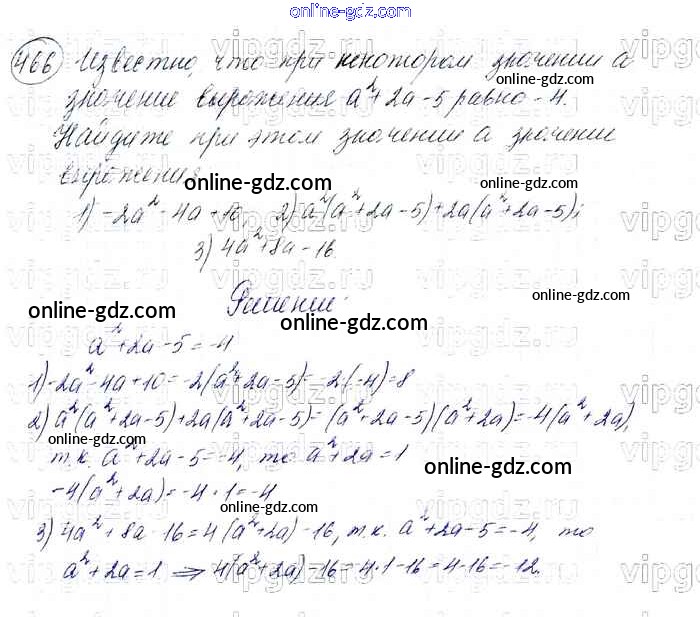 online-gdz.com
online-gdz.com
466 Известно, что при некотором значении a
online-gdz.com
значение выражения a²+2a-5 равно -4.
Найдите при этом значении a значение
выражения
online-gdz.com
online-gdz.com
1) -2a²-4a+10, 2) a²(a²+2a-5)+2a(a²+2a-5);
3) 4a²+8a-16.
online-gdz.com
Решение:
online-gdz.com
online-gdz.com
a²+2a-5=-4
1) -2a²-4a+10=-2(a²+2a-5)=-2·(-4)=8
2) a²(a²+2a-5)+2a(a²+2a-5)=(a²+2a-5)(a²+2a)=-4(a²+2a),
online-gdz.com
т.к. a²+2a-5=-4, то a²+2a=1
online-gdz.com
-4(a²+2a)=-4·1=-4
online-gdz.com
3) 4a²+8a-16=4(a²+2a)-16, т.к. a²+2a-5=-4, то
a²+2a=1 => 4(a²+2a)-16=4·1-16=4-16=-12.
online-gdz.com